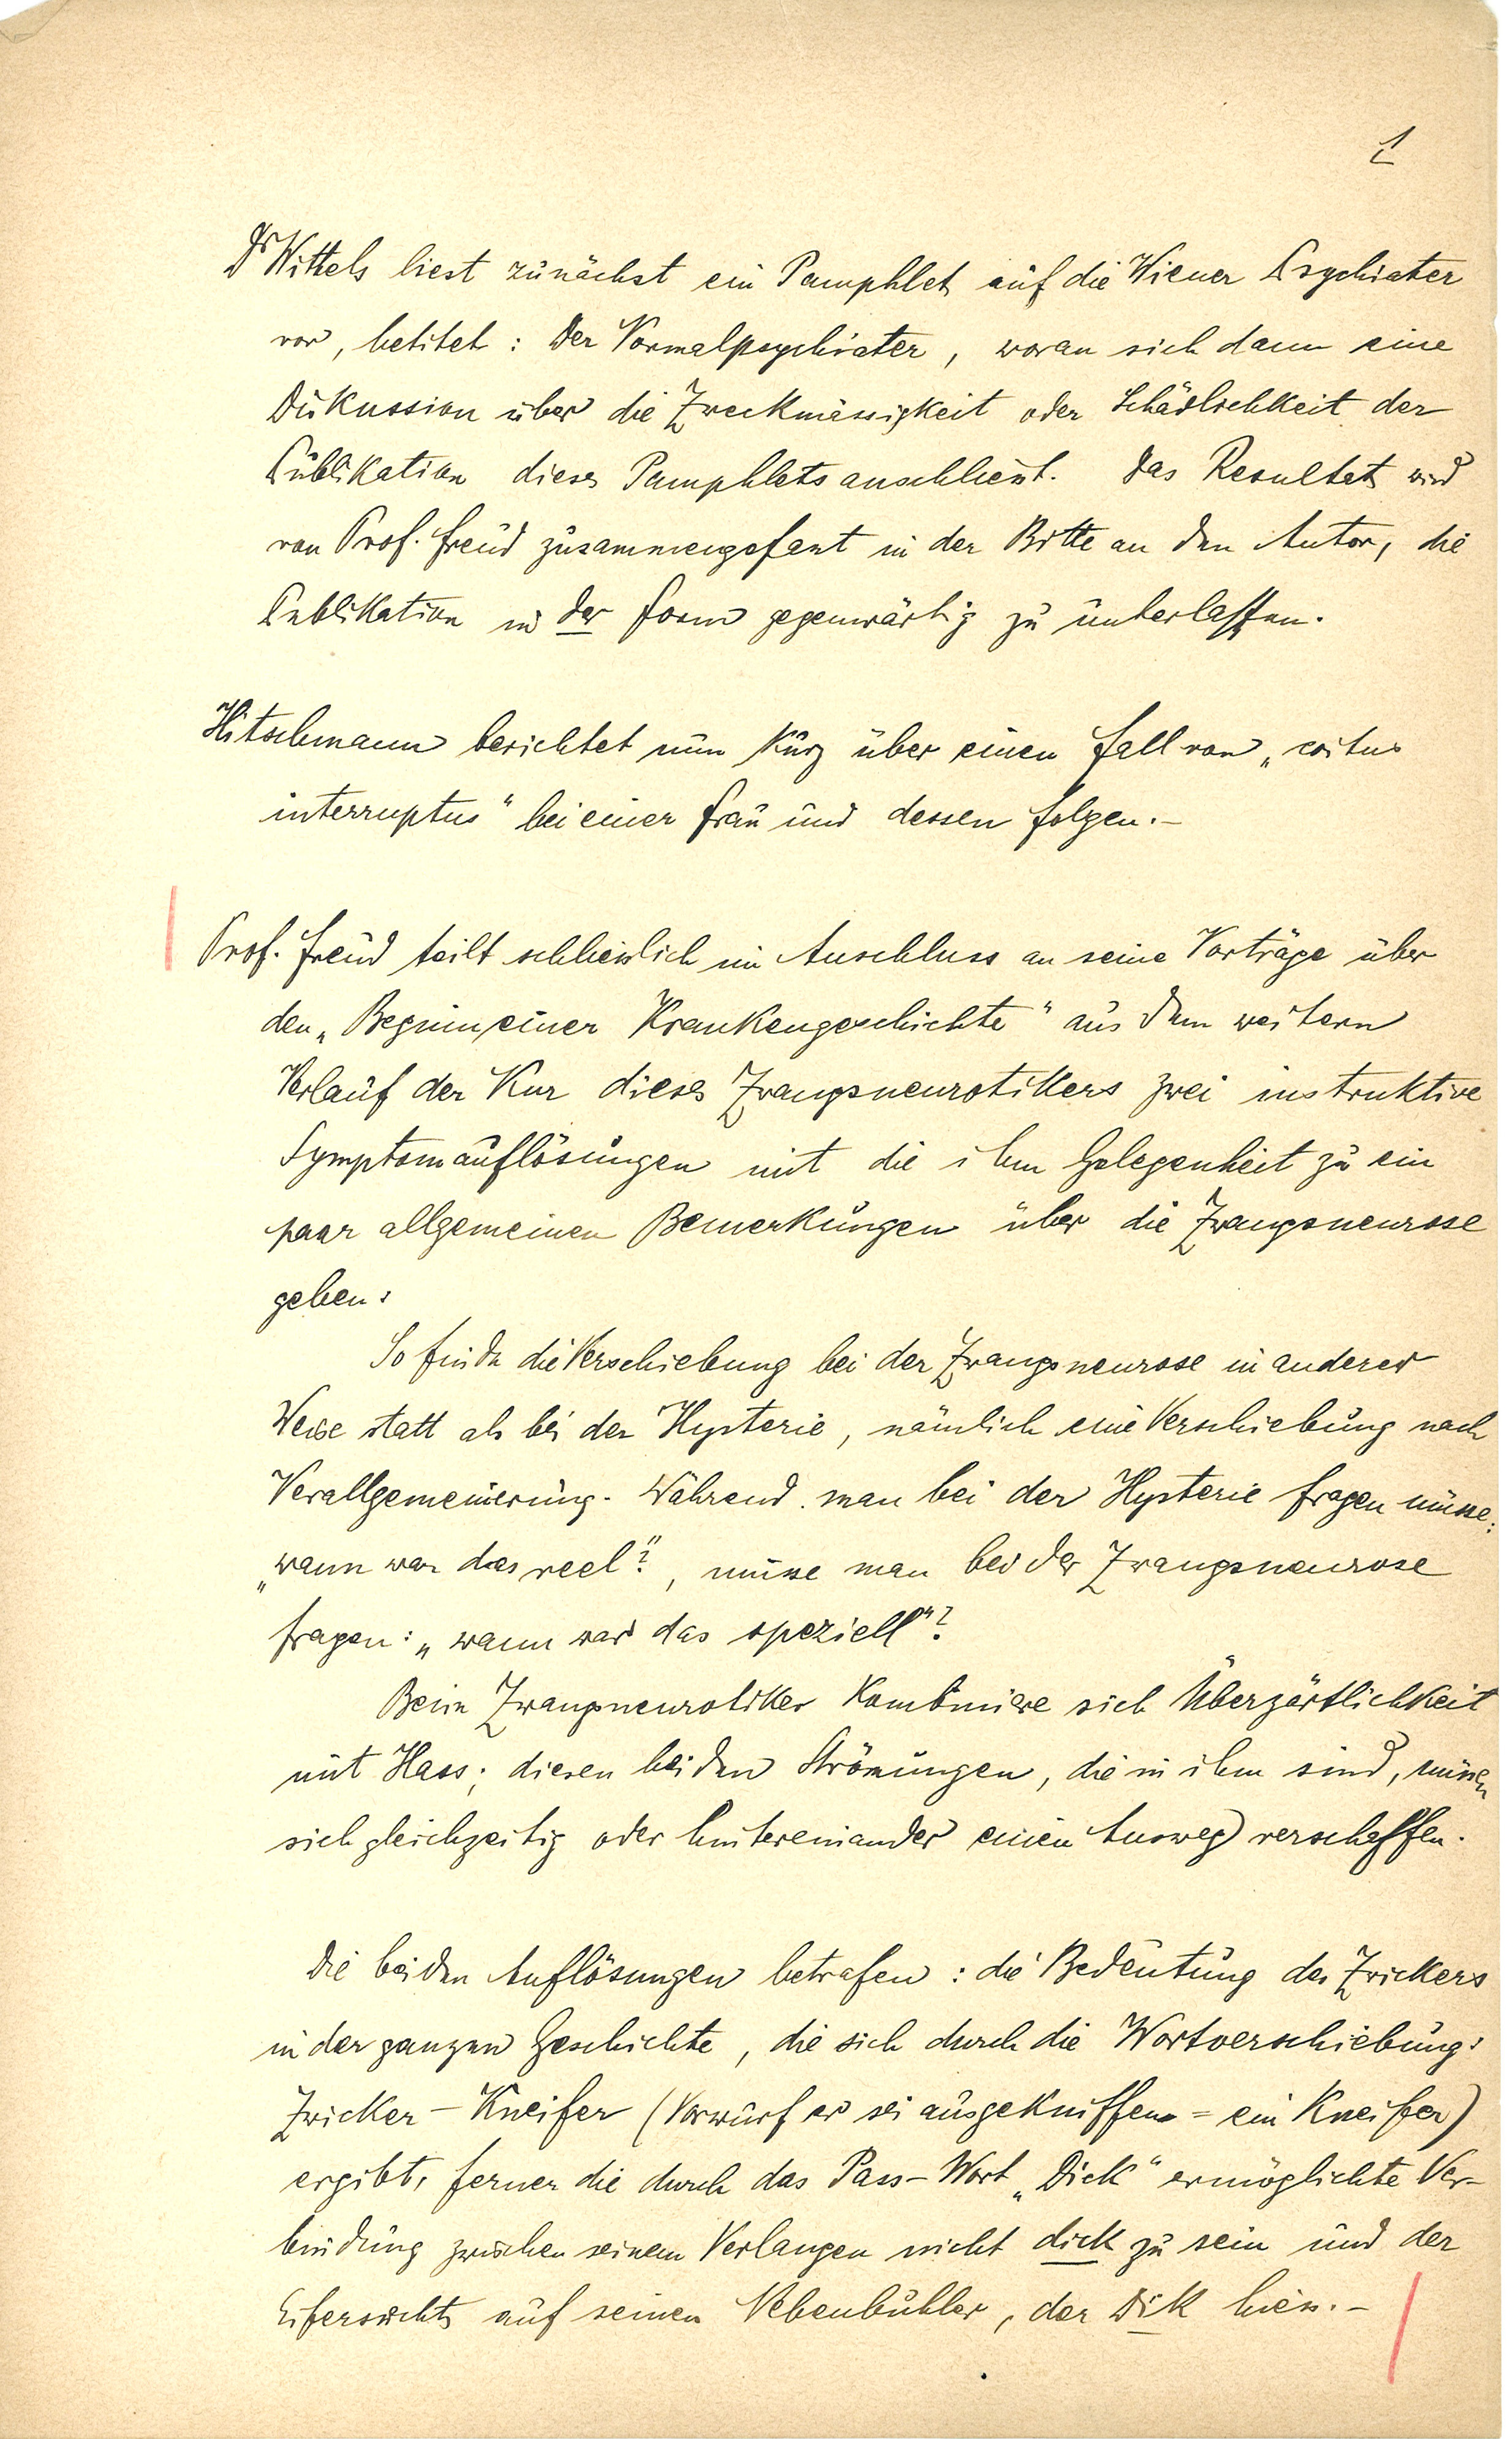 1
Dr Wittels liest zunächst ein Pamphlet auf die Wiener Psychiater
vor, betitelt: Der Normalpsychiater, woran sich dann eine
Diskussion über die Zweckmässigkeit oder Schädlichkeit der
Publikation dieses Pamphlets anschliesst. Das Resultat wird
von Prof. Freud zusammengefasst in der Bitte an den Autor, die
Publikation in der Form gegenwärtig zu unterlassen.
Hitschmann berichtet nun kurz über einen Fall von „coitus
interruptus“ bei einer Frau und dessen Folgen.–
Prof. Freud teilt schliesslich im Anschluss an seine Vorträge über
den „Beginn einer Krankengeschichte“ aus dem weitern
Verlauf der Kur dieses Zwangsneurotikers zwei instruktive
Symptomauflösungen mit die ihm Gelegenheit zu ein
paar allgemeinen Bemerkungen über die Zwangsneurose
geben:
So finde die Verschiebung bei der Zwangsneurose in anderer
Weise statt als bei der Hysterie, nämlich eine Verschiebung nach
Verallgemeinerung. Während man bei der Hysterie fragen müsse:
„wann war das reel“?, müsse man bei der Zwangsneurose
fragen: „wann war das speziell“?
Beim Zwangneurotiker kombiniere sich Überzärtlichkeit
mit Hass; diesen beiden Strömungen, die in ihm sind, müssen
sich gleichzeitig oder hintereinander einen Ausweg verschaffen.
Die beiden Auflösungen betrafen: die Bedeutung des Zwickers
in der ganzen Geschichte, die sich durch die Wortverschiebung:
Zwicker – Kneifer (Vorwurf er sei ausgekniffen = ein Kneifer)
ergibt, ferner die durch das Pass-Wort „Dick“ ermöglichte Ver-
bindung zwischen seinem Verlangen nicht dick zu sein und der
Eifersucht auf seinen Nebenbuhler, der Dik hiess.–